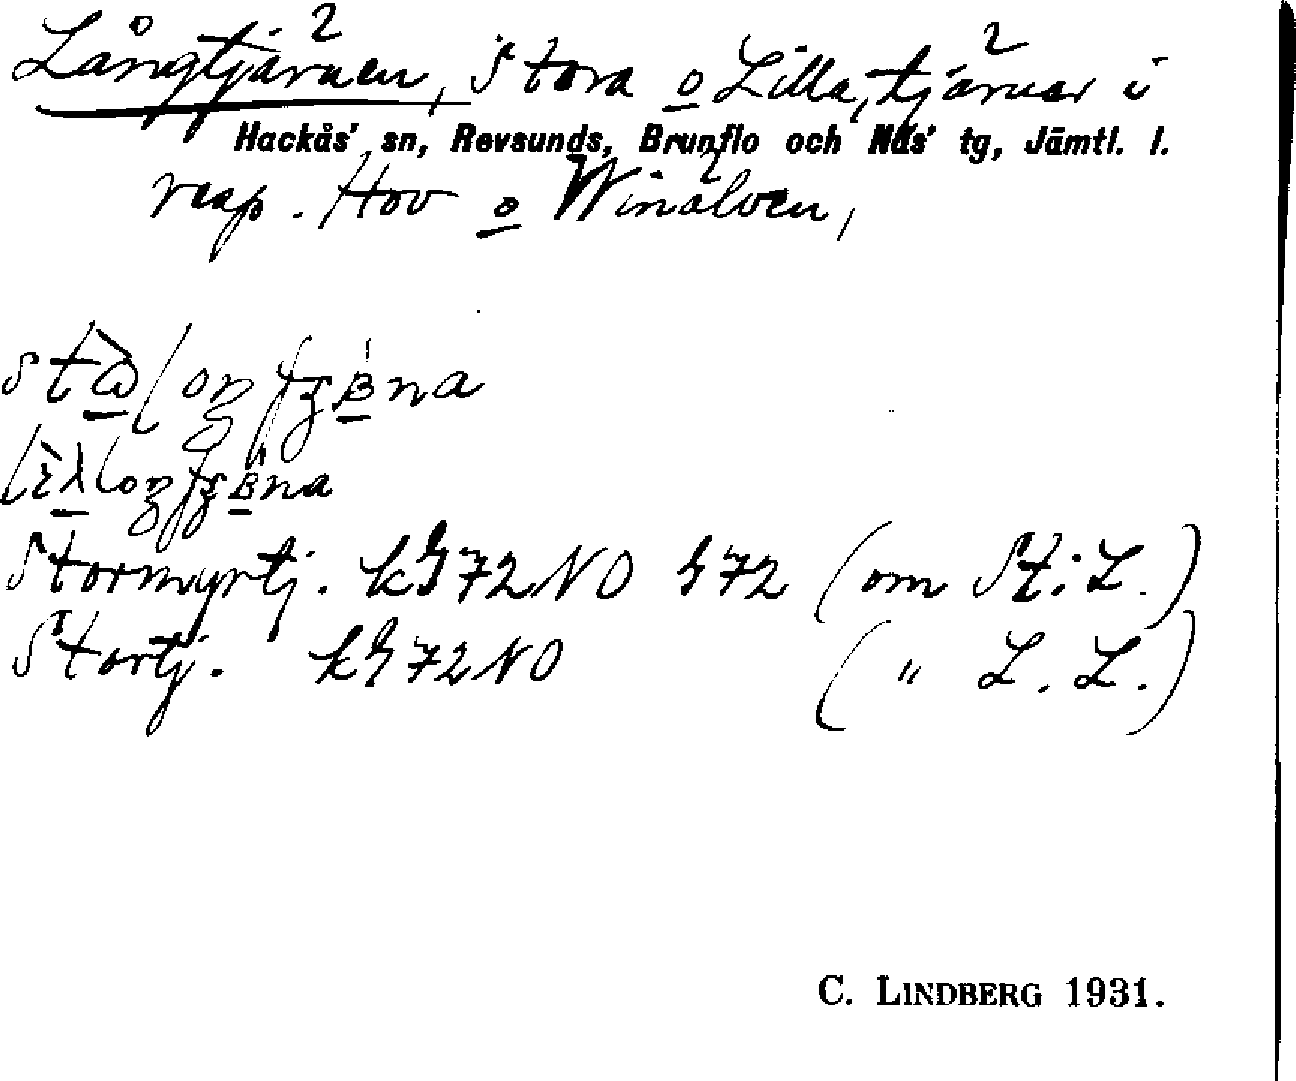 Långtjärnen, Stora o Lilla, tjärnar i
Hackås' sn, Revsunds, Brunflo och Näs' tg, Jämtl. l.
resp. Hov o Winälven,
Stormyrtj. kS72NO S72 (om St. L.)
Stortj. kS72NO (" L. L.)
C. LINDBERG 1931.